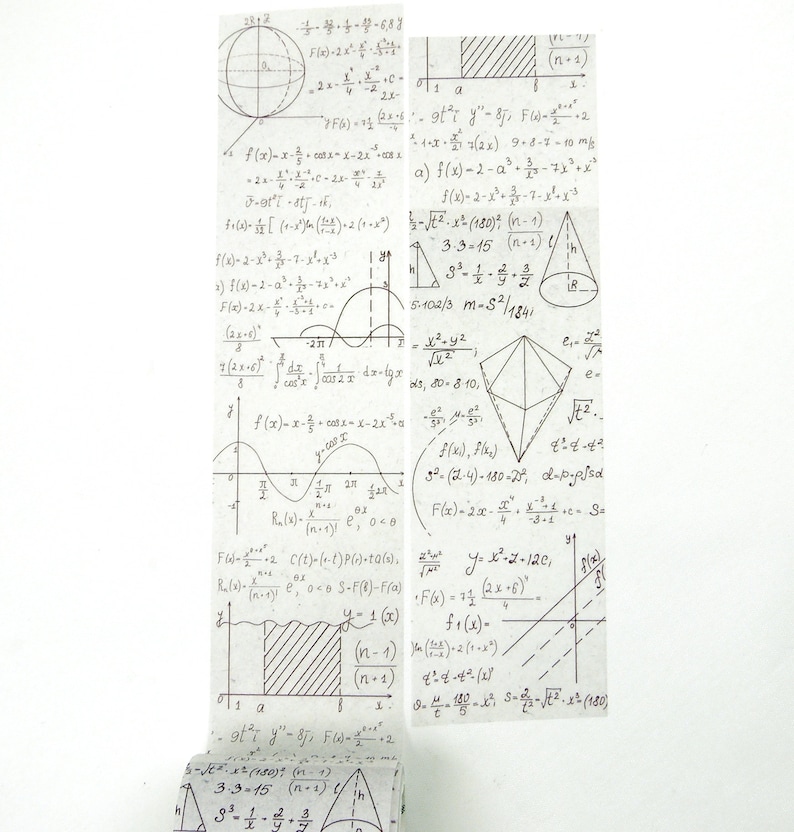 2R Z
-1/5 = 32/5 + 1/5 = 33/5 = 6,8 y
F(x)=2x - x⁴/4 + x⁻³⁺¹/-3+1 +
= 2x - x⁴/4 + x⁻²/-2 + c =
2x-
O
y F(x) = 7 1/2 (2x+6)/-4
f(x)=x-2/5 + cosx=x-2x⁻⁵+cosx
=2x - x⁴/4 + x⁻²/-2 +C=2x- x⁴/4 - 1/2x²
v̄=9t²ī +8tj̄-1k̄,
f₁(x)= 1/32 [ (1-x²)ln(1+x/1-x)+2(1+x²)
f(x)=2-x³+3/x³-7-x⁸+x⁻³
a) f(x)=2-a³+3/x³-7x³+x⁻³
F(x)=2x- x⁴/4 + x⁻³⁺¹/-3+1 +c=
y
3
(2x+6)⁴/8
-2π
π
7(2x+6)²/8 ∫ dx/cos²x = ∫ 1/cos2x · dx=tgx
y
f(x)=x-2/5 + cosx=x-2x⁻⁵+c
1
y=cosx
0
π/2 π 1 1/2π 2π 1/2 2π x
-1
Rₙ(x)= xⁿ⁺¹/(n+1)! e^θx, 0<θ
F(x)= x⁸⁺ˣ⁵/2 +2 C(t)=(1-t)P(r)+tQ(s),
Rₙ(x)= xⁿ⁺¹/(n+1)! e^θx, 0<θ S=F(b)-F(a)
y y=1(x)
(n-1)/(n+1)
0 1 a b x
' = 9t²ī y''=8j̄, F(x)= x⁸⁺ˣ⁵/2 +2
2/2=√t²·x³=(180)²; (n-1)/(n+1) l
3·3=15
h h
S³= 1/x + 2/y + 3/Z
(n-1)/(n+1)
0 1 a b x
' = 9t²ī y''=8j̄, F(x)= x⁸⁺ˣ⁵/2 +2
=1+x+x²/2 7(2x) 9+8-7=10 m/s
a) f(x)=2-a³+3/x³-7x³+x⁻³
f(x)=2-x³+3/x³-7-x⁸+x⁻³
2/2=√t²·x³=(180)²; (n-1)/(n+1) l
3·3=15
h h
S³= 1/x + 2/y + 3/Z
R
5·102/3 m=S²/184;
= x²+y²/√x²; e₁= Z²/√μ
ds, 80=8·10; e=
= e²/S³; μ= e²/S³; √t²·
f(x₁), f(x₂)
S²=(Z·4)+180=D², d=p+p∫sd
F(x)=2x- x⁴/4 + x⁻³⁺¹/-3+1 +c= S=
y
z²+μ²/√μ² y=x²+Z+12c, f(x)
F(x)=7 1/2 (2x+6)⁴/4 =
f₁(x)=
0
)ln(1+x/1-x)+2(1+x²)
ϑ= μ/t = 180/5 =x²; S= 2/t² =√t²·x³=(180)